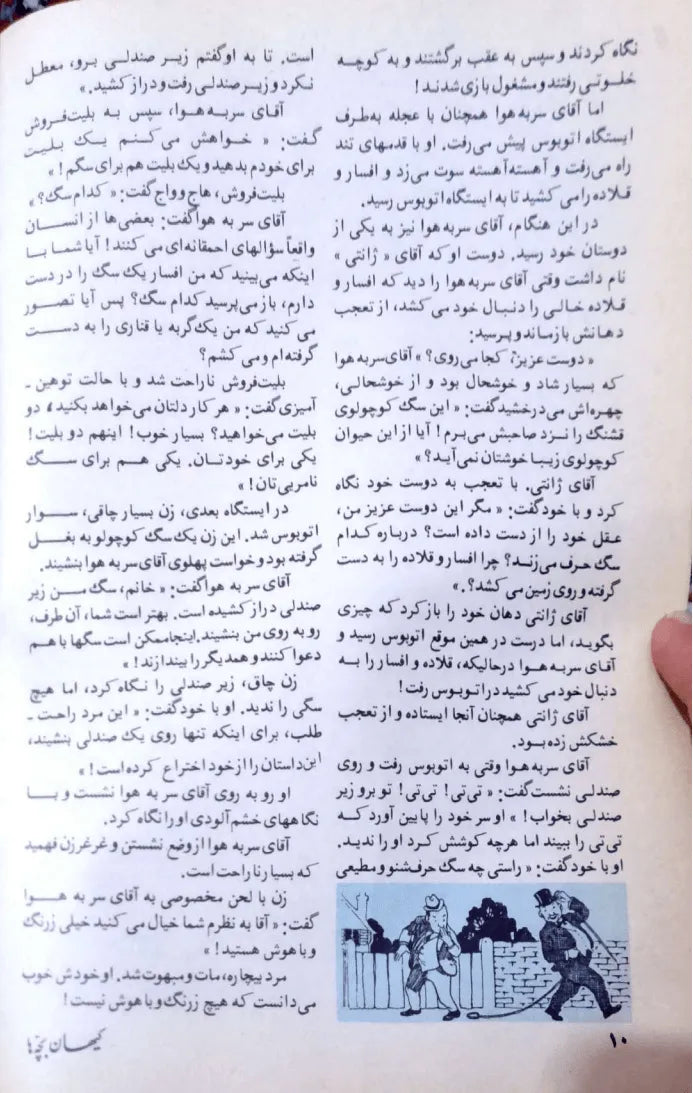 نگاه کردند و سپس به عقب برگشتند و به کوچه
خلوتی رفتند و مشغول بازی شدند!
اما آقای سربه هوا همچنان با عجله به‌طرف
ایستگاه اتوبوس پیش می‌رفت. او با قدمهای تند
راه می‌رفت و آهسته آهسته سوت می‌زد و افسار و
قلاده را می کشید تا به ایستگاه اتوبوس رسید.
در این هنگام، آقای سربه هوا نیز به یکی از
دوستان خود رسید. دوست او که آقای « ژانتی »
نام داشت وقتی آقای سربه هوا را دید که افسار و
قلاده خالی را دنبال خود می کشد، از تعجب
دهانش باز ماند و پرسید:
« دوست عزیز، کجا می‌روی؟ » آقای سربه هوا
که بسیار شاد و خوشحال بود و از خوشحالی،
چهره‌اش می‌درخشید گفت: « این سگ کوچولوی
قشنگ را نزد صاحبش می‌برم! آیا از این حیوان
کوچولوی زیبا خوشتان نمی‌آید؟ »
آقای ژانتی. با تعجب به دوست خود نگاه
کرد و با خود گفت: « مگر این دوست عزیز من،
عقل خود را از دست داده است؟ درباره کدام
سگ حرف می‌زند؟ چرا افسار و قلاده را به دست
گرفته و روی زمین می کشد؟.»
آقای ژانتی دهان خود را باز کرد که چیزی
بگوید، اما درست در همین موقع اتوبوس رسید و
آقای سربه هوا درحالیکه، قلاده و افسار را به
دنبال خود می کشید در اتوبوس رفت!
آقای ژانتی همچنان آنجا ایستاده و از تعجب
خشکش زده بود.
آقای سربه هوا وقتی به اتوبوس رفت و روی
صندلی نشست گفت: « تی‌تی! تی‌تی! تو برو زیر
صندلی بخواب! » او سر خود را پایین آورد که
تی‌تی را ببیند اما هرچه کوشش کرد او را ندید.
او با خود گفت: « راستی چه سگ حرف‌شنو و مطیعی
است. تا به او گفتم زیر صندلی برو، معطل
نکرد و زیر صندلی رفت و دراز کشید. »
آقای سربه هوا، سپس به بلیت‌فروش
گفت: « خواهش می‌کنم یک بلیت
برای خودم بدهید و یک بلیت هم برای سگم! »
بلیت‌فروش، هاج و واج گفت: « کدام سگ؟ »
آقای سر به هوا گفت: بعضی‌ها از انسان
واقعاً سؤالهای احمقانه‌ای می کنند! آیا شما با
اینکه می‌بینید که من افسار یک سگ را در دست
دارم، باز می‌پرسید کدام سگ؟ پس آیا تصور
می کنید که من یک گربه یا قناری را به دست
گرفته‌ام و می کشم؟
بلیت‌فروش ناراحت شد و با حالت توهین ـ
آمیزی گفت: « هر کار دلتان می‌خواهد بکنید، دو
بلیت می‌خواهید؟ بسیار خوب! اینهم دو بلیت!
یکی برای خودتان. یکی هم برای سگ
نامریی‌تان! »
در ایستگاه بعدی، زن بسیار چاقی، سوار
اتوبوس شد. این زن یک سگ کوچولو به بغل
گرفته بود و خواست پهلوی آقای سربه هوا بنشیند.
آقای سربه هوا گفت: « خانم، سگ من زیر
صندلی دراز کشیده است. بهتر است شما، آن طرف،
رو به روی من بنشیند. اینجا ممکن است سگها با هم
دعوا کنند و همدیگر را بیندازند! »
زن چاق، زیر صندلی را نگاه کرد، اما هیچ
سگی را ندید. او با خود گفت: « این مرد راحت ـ
طلب، برای اینکه تنها روی یک صندلی بنشیند،
این داستان را از خود اختراع کرده است! »
او رو به روی آقای سر به هوا نشست و با
نگاههای خشم‌آلودی او را نگاه کرد.
آقای سربه هوا از وضع نشستن و غرغر زن فهمید
که بسیار ناراحت است.
زن با لحن مخصوصی به آقای سر به هوا
گفت: « آقا به نظرم شما خیال می کنید خیلی زرنگ
و با هوش هستید! »
مرد بیچاره، مات و مبهوت شد. او خودش خوب
می‌دانست که هیچ زرنگ و با هوش نیست!
۱۰
کیهان بچه‌ها